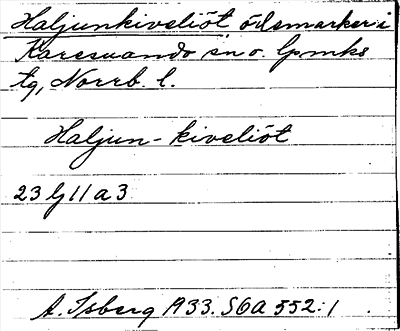 Haljunkiveliöt ödemarker i
Karesuando sn o. lpmks
tg, Norrb. l.
Haljun-kiveliöt
23 lj 11 a 3
A. Isberg 1933. SOA 552:1